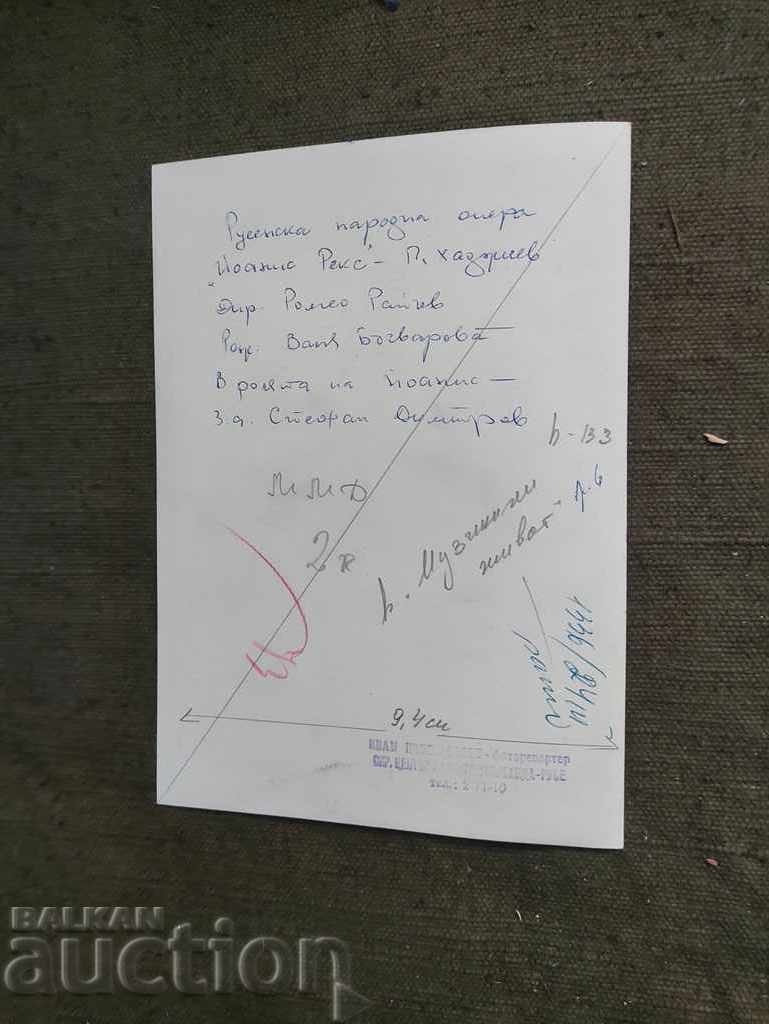 Русенска народна опера
"Йоанис Рекс" – П. Хаджиев
Дир. Ромео Райчев
Реж. Ваня Бъчварова
В ролята на Йоанис –
з.а. Стефан Димитров
в-вз
ММД
2к
в. "Музикален
живот"
9,4 см
ИВАН - фоторепортер
ОКР. -РУСЕ
Тел.:
BALKAN
auction